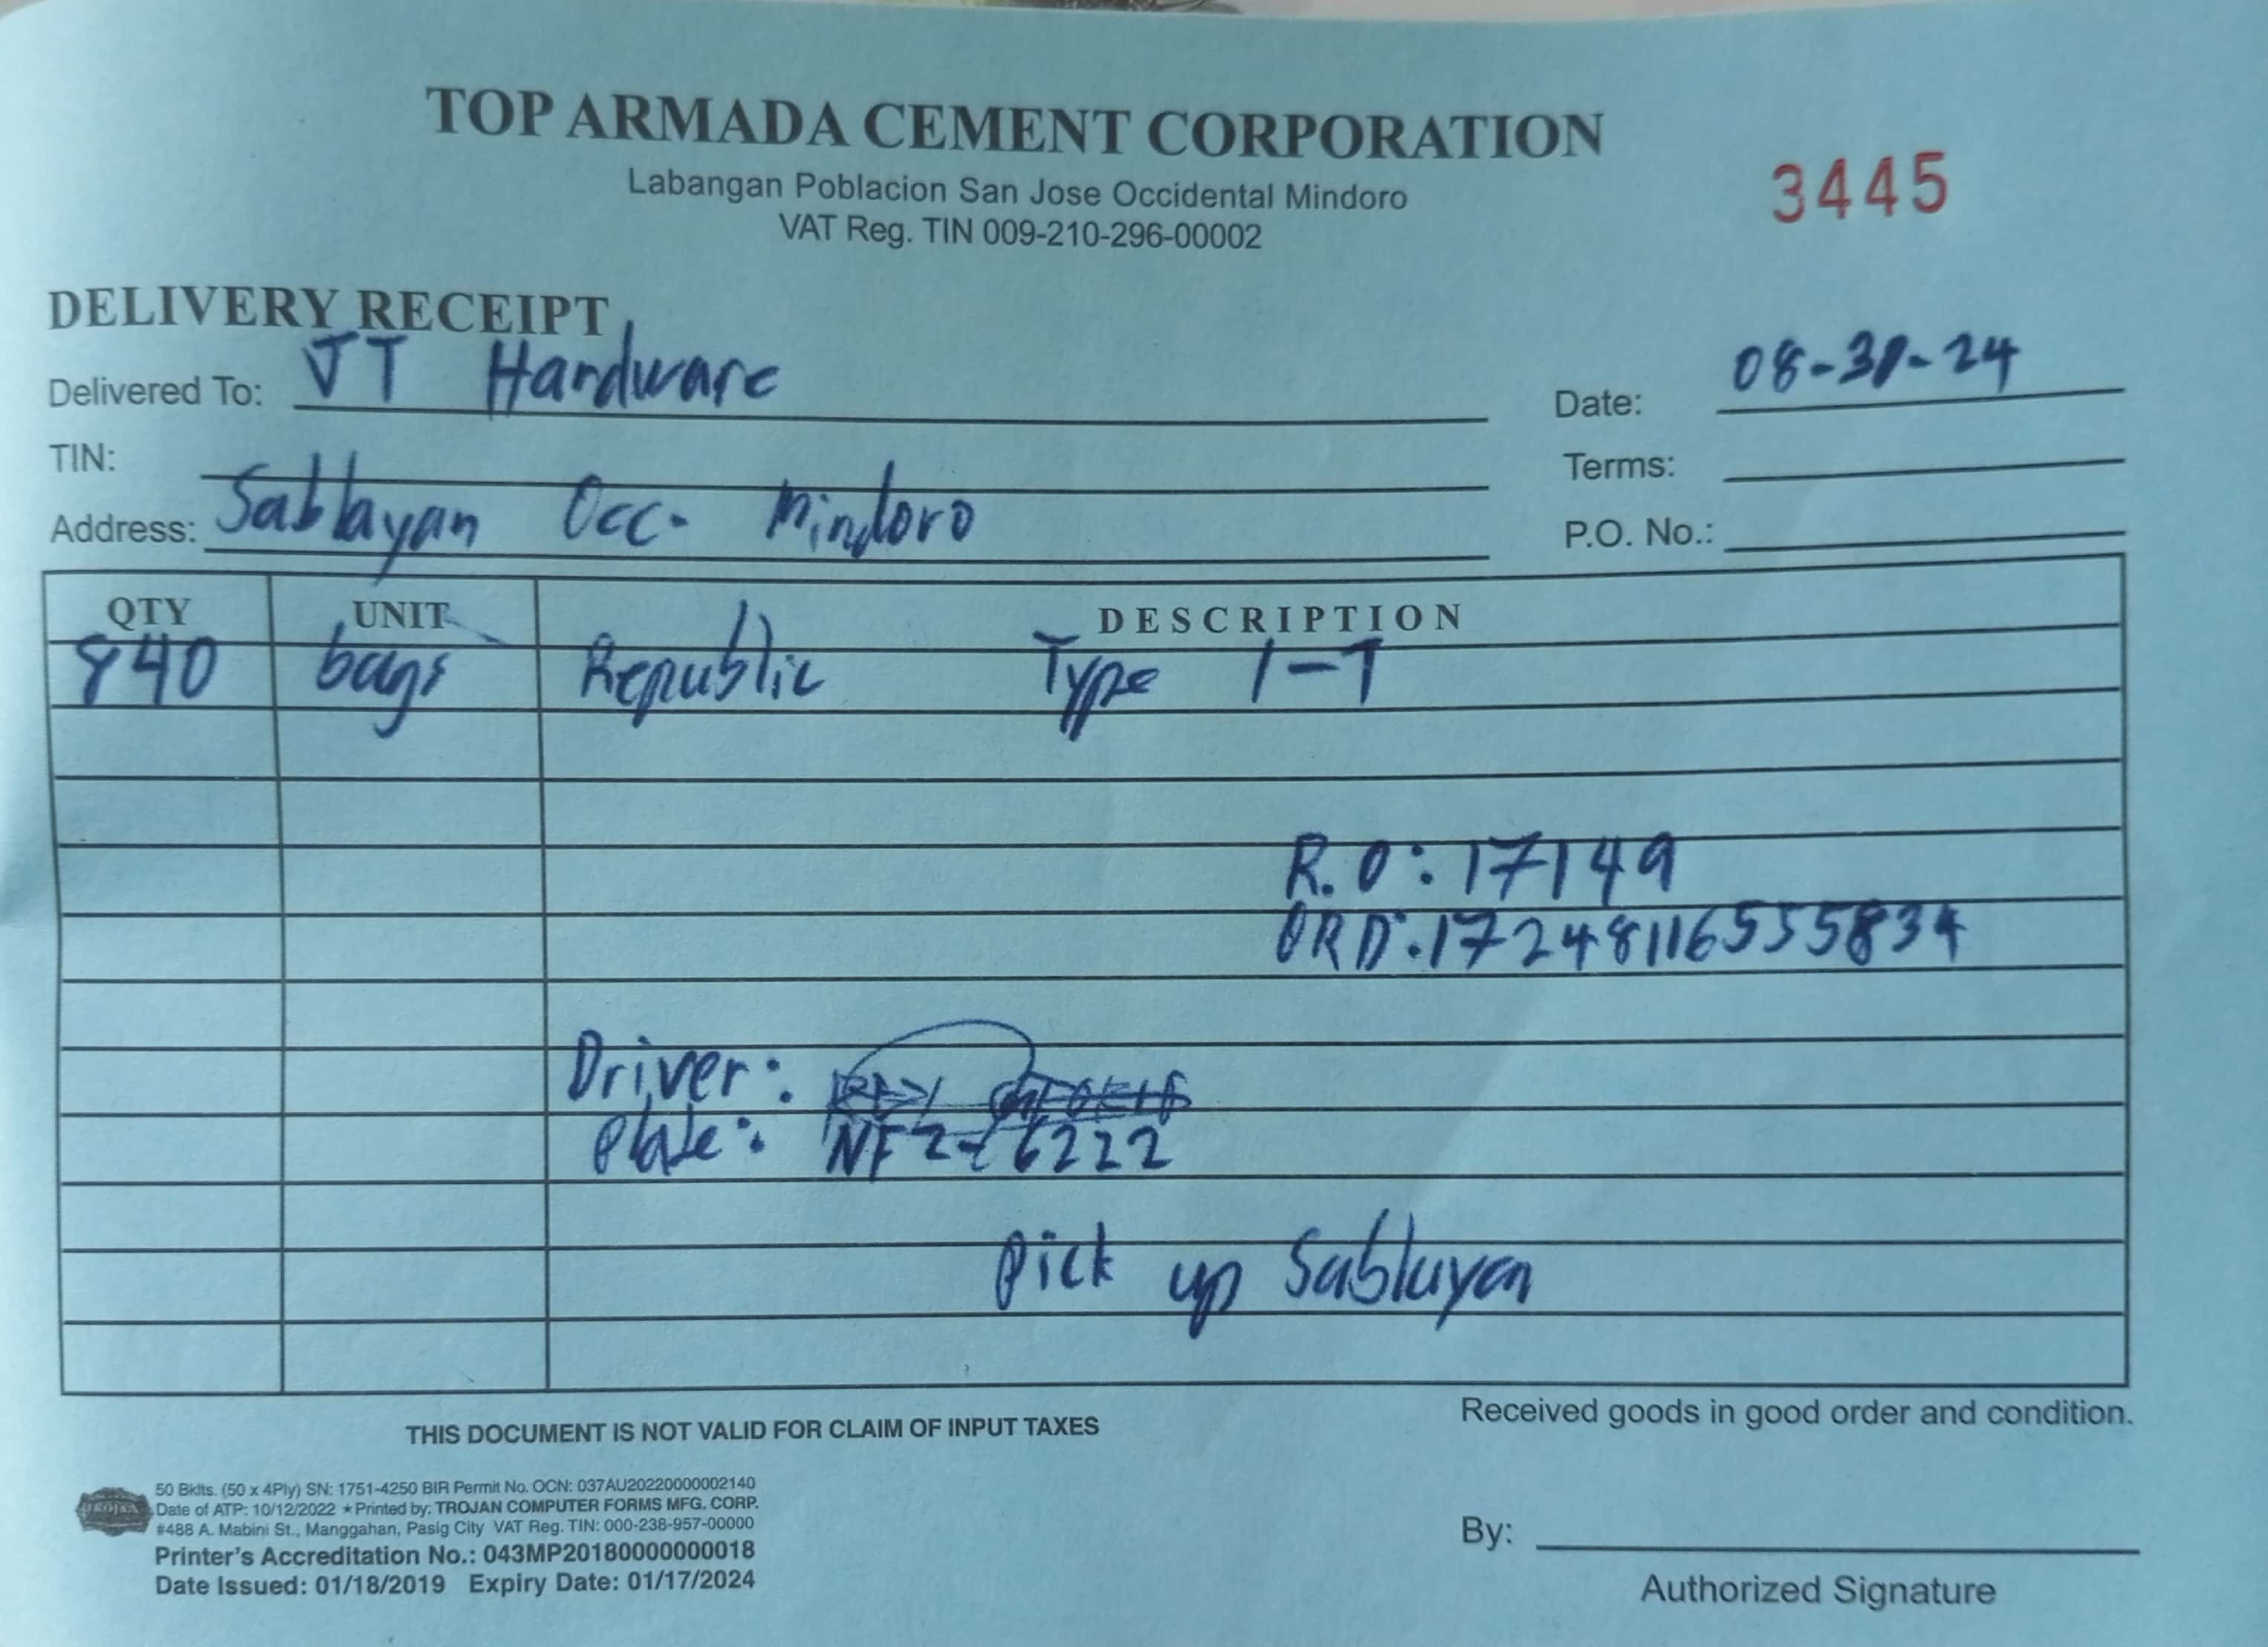 TOP ARMADA CEMENT CORPORATION
Labangan Poblacion San Jose Occidental Mindoro
VAT Reg. TIN 009-210-296-00002
3445
DELIVERY RECEIPT
Delivered To: JT Hardware
Date: 08-31-24
TIN:
Terms:
Address: Sablayan Occ. Mindoro
P.O. No.:
QTY UNIT DESCRIPTION
840 bags Republic Type 1-T
R.O: 17149
ORD: 17248116555834
Driver:
Plate: NF2-6222
Pick up Sablayan
THIS DOCUMENT IS NOT VALID FOR CLAIM OF INPUT TAXES
Received goods in good order and condition.
TROJAN
50 Bklts. (50 x 4Ply) SN: 1751-4250 BIR Permit No. OCN: 037AU20220000002140
Date of ATP: 10/12/2022 ★Printed by: TROJAN COMPUTER FORMS MFG. CORP.
#488 A. Mabini St., Manggahan, Pasig City VAT Reg. TIN: 000-238-957-00000
Printer's Accreditation No.: 043MP20180000000018
Date Issued: 01/18/2019 Expiry Date: 01/17/2024
By:
Authorized Signature